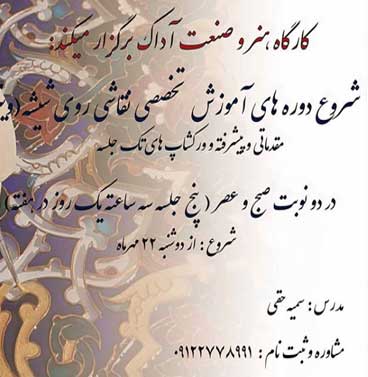 کارگاه هنر و صنعت آداک برگزار میکند:
شروع دوره های آموزش تخصصی نقاشی روی شیشه (وی
مقدماتی و پیشرفته و ورکشاپ های تک جلسه
در دو نوبت صبح و عصر (پنج جلسه سه ساعته یک روز در هفته)
شروع : از دوشنبه ۲۲ مهرماه
مدرس : سمیه حقی
مشاوره و ثبت نام : ۰۹۱۲۲۷۷۸۹۹۱